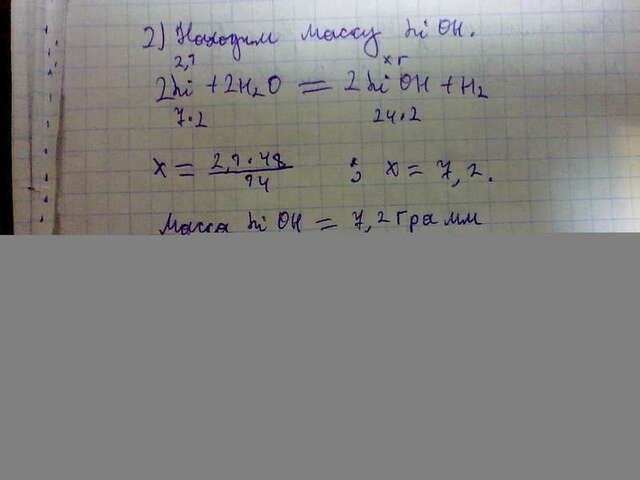 2) Находим массу Li OH.
2,1 x г
2Li + 2H₂O = 2Li OH + H₂
7·2 24·2
x = 2,1·48/14 ; x = 7,2.
Масса Li OH = 7,2 Грамм